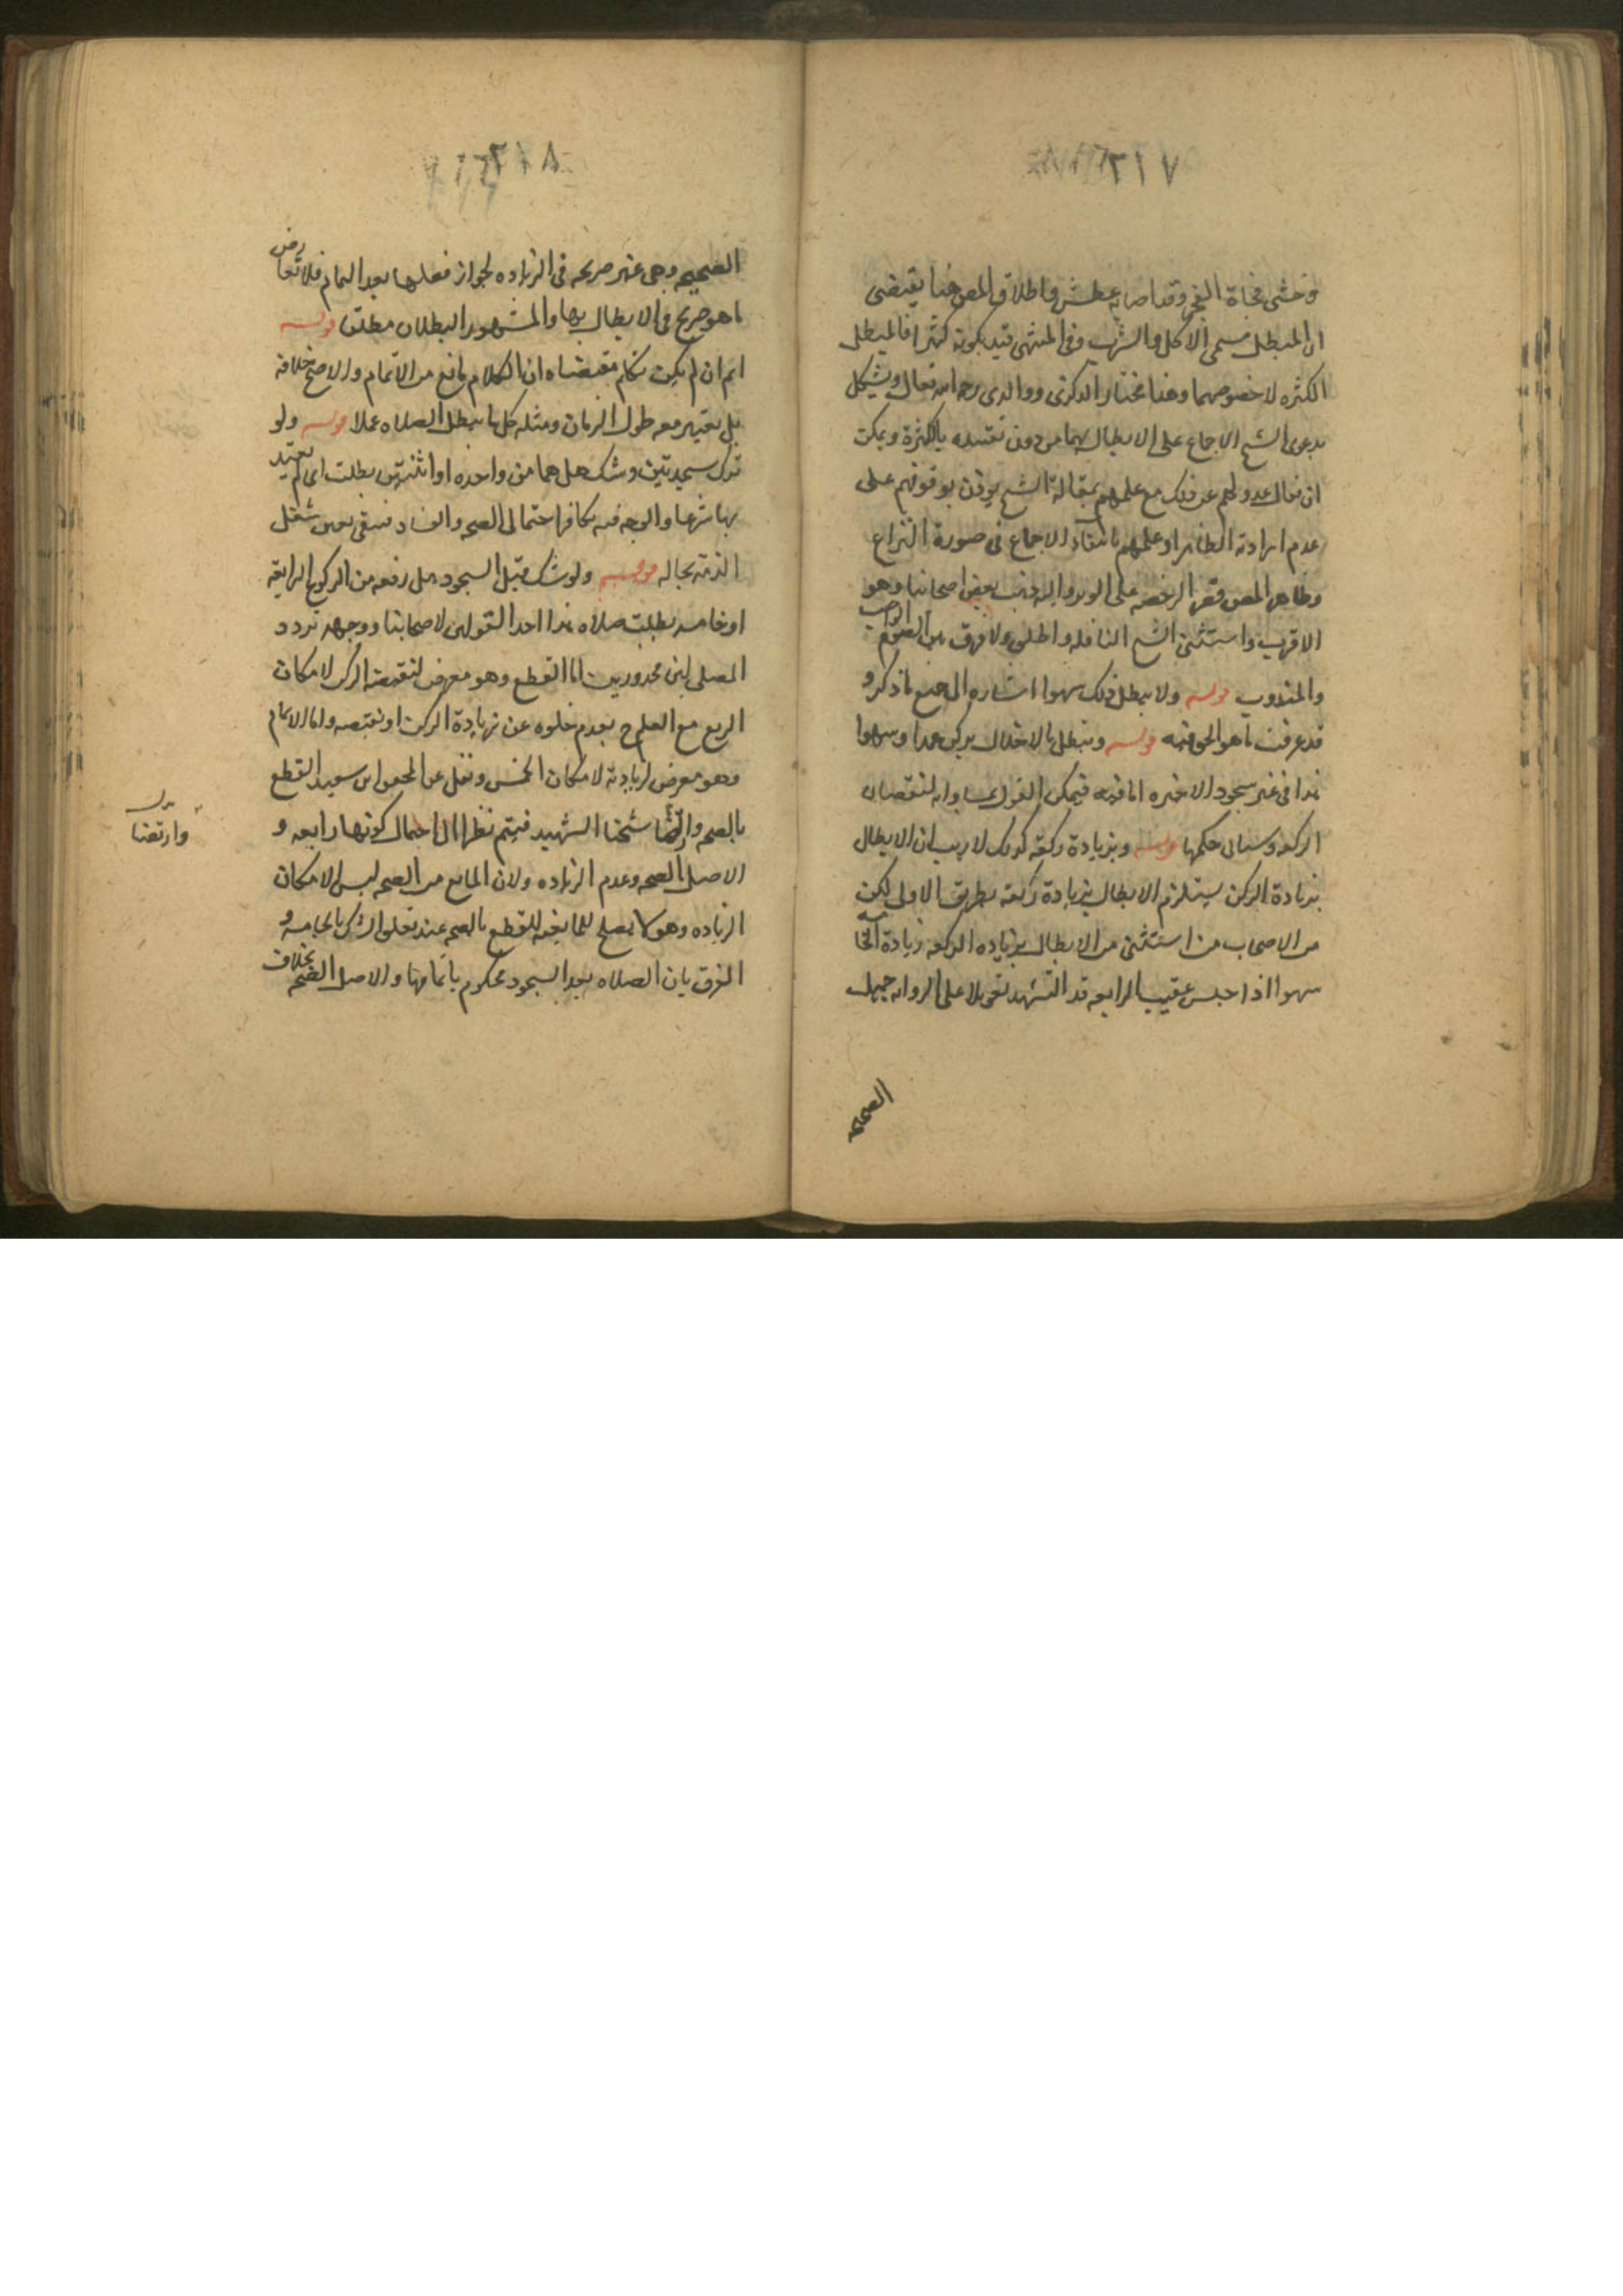 ٢١٧
وخشى فجاة الفجر وقد اصابه عطش واطلاق المص هنا يقتضى
ان المبطل مسمى الاكل والشرب وفى المنتهى قيد بكونه كثيرا فالمبطل
الكثره لا خصوصهما وهذا مختار الذكرى ووالدى رحمه الله تعالى ويشكل
بدعوى الشيخ الاجماع على الابطال بهما من دون تقييده بالكثرة ويمكن
ان يقال عدولهم عن ذلك مع علمهم بمقالة الشيخ يؤذن بوقوفهم على
عدم ارادته الظاهر او علمهم بانتفاء الاجماع فى صورة النزاع
وظاهر المص قصر الرخصه على الوتر واليه ذهب بعض اصحابنا وهو
الاقرب واستثنى الشيخ النافله واطلق ولا فرق بين الصوم الواجب
والمندوب قوله ولا يبطل ذلك سهوا اشاره الى جميع ما ذكر و
قد عرفت ما هو الحق فيه قوله وتبطل بالاخلال بركن عمدا وسهوا
هذا فى غير سجود الاخيره اما فيه فيمكن القول بمساواته لنقصان
الركعه وسياتى حكمها قوله وبزيادة ركعة كذلك لا ريب ان الابطال
بزيادة الركن يستلزم الابطال بزيادة ركعة بطريق الاولى لكن
من الاصحاب من استثنى من الابطال بزياده الركعه زيادة الخامسه
سهوا اذا جلس عقيب الرابعه قدر التشهد تعويلا على الروايه جميل
الصحيحه
٢١٨
الصحيحه وهى غير صريحه فى الزياده لجواز فعلها بعد التمام فلا تعارض
ما هو صريح فى الابطال بها والمشهور البطلان مطلقا قوله
اتم ان لم يكن تكلم مقتضاه ان الكلام مانع من الاتمام والاصح خلافه
بل يعتبر معه طول الزمان ومثله كل ما يبطل الصلاه عملا قوله ولو
ترك سجدتين وشك هل هما من واحده او اثنتين بطلت اى لم يعتد
بها شرعا والوجه فيه تكافؤ احتمالى الصحه والفساد فيبقى يقين شغل
الذمه بحاله قوله ولو شك قبل السجود هل رفعه من الركوع لرابعة
او خامسه بطلت صلاته هذا احد القولين لاصحابنا ووجهه تردد
المصلى بين محذورين اما القطع وهو معرض لنقيصة الركن لامكان
الربع مع العلم ح بعدم خلوه عن زيادة الركن او نقيصه واما الاتمام
وهو معرض لزيادته لامكان الخمس ونقل عن المحقق ابن سعيد القطع
بالصحه وارتضا شيخنا الشهيد فيتم نظرا الى احتمال كونها رابعه و
الاصل الصحه وعدم الزياده ولان المانع من الصحه ليس الا امكان
الزياده وهو لا يصلح للمانعيه للقطع بالصحه عند تعلق الشك بالخامسه و
الفرق بان الصلاه بعد السجود محكوم باتمامها والاصل الصحه بخلاف
وارتضا
بدل